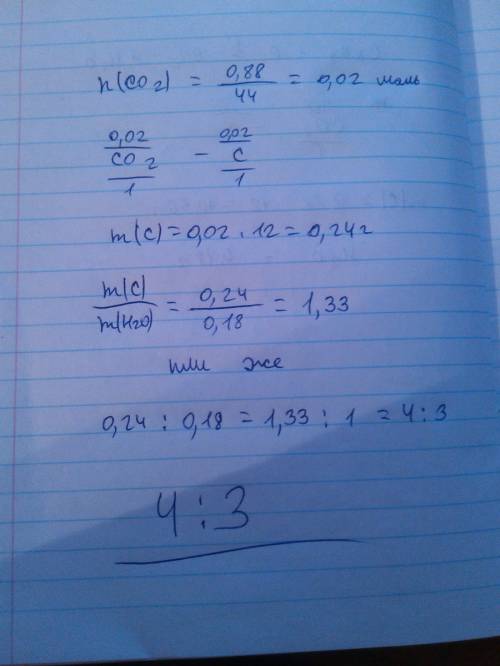 n(CO2) = 0,88/44 = 0,02 моль
0,02/CO2/1 - 0,02/C/1
m(C) = 0,02 . 12 = 0,24г
m(C)/m(H2O) = 0,24/0,18 = 1,33
или же
0,24 : 0,18 = 1,33 : 1 = 4 : 3
4 : 3